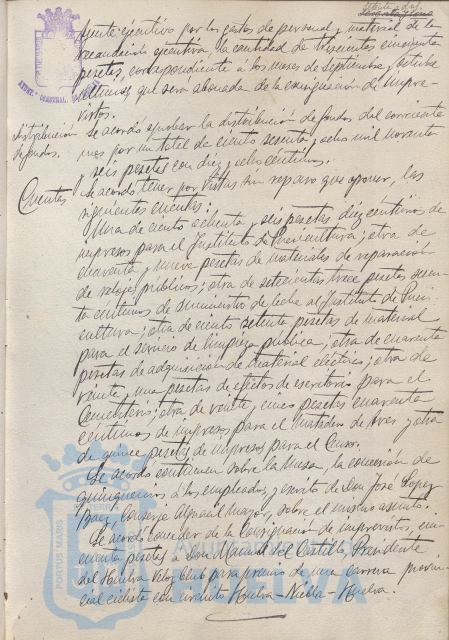 Agente ejecutivo por los gastos de personal y material de la
recaudación ejecutiva, la cantidad de trescientas cincuenta
pesetas, correspondiente á los meses de Septiembre y Octubre
últimos que será abonada de la consignación de impre-
vistos.
Distribución
de fondos.
Se acordó aprobar la distribución de fondos del corriente
mes por un total de ciento sesenta y ocho mil noventa
y seis pesetas con diez y ocho céntimos.
Cuentas
Se acordó tener por vistas sin reparo que oponer, las
siguientes cuentas:
Una de ciento ochenta y seis pesetas diez céntimos de
impresos para el Instituto de Puericultura; otra de
cuarenta y nueve pesetas de materiales de reparación
de relojes públicos; otra de setecientas trece pesetas
céntimos de suministro de leche al Instituto de Pueri
cultura; otra de ciento setenta pesetas de material
para el servicio de limpieza pública; otra de cuarenta
pesetas de adquisición de material eléctrico; otra de
veinte y una pesetas de efectos de escritorio para el
Cementerio; otra de veinte y cinco pesetas cuarenta
céntimos de impresos para el Matadero de Aves y otra
de quince pesetas de impresos para el Censo.
Se acordó continuen sobre la Mesa, la concesión de
quinquenios á los empleados, y escrito de Don José López
Báez, Conserje Alguacil Mayor, sobre el mismo asunto.
Se acordó conceder de la Consignación de imprevistos, cin-
cuenta pesetas á Don Manuel del Castillo, Presidente
del Huelva Veloz Club para premio de una carrera provin
cial ciclista con circuito Huelva-Niebla-Huelva.
PORTUS MARIS